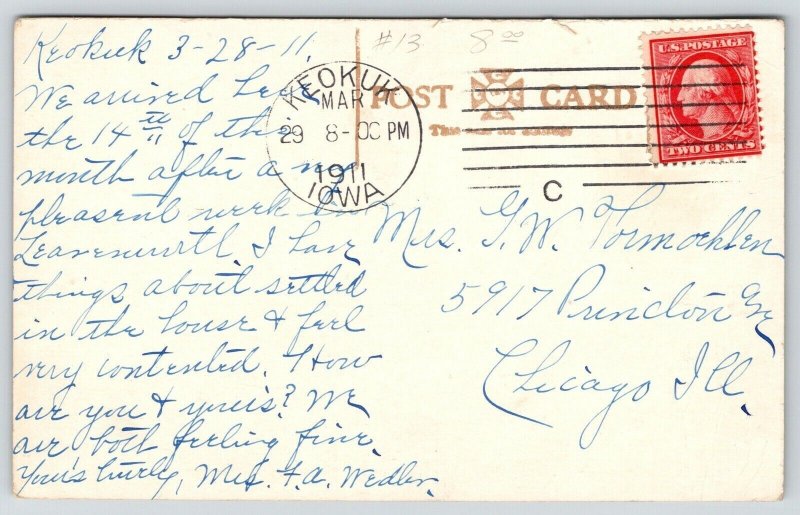 Keokuk 3-28-11.
We arrived here
the 14th of this
month after a my
pleasent week in
Leavenworth. I have
things about settled
in the house & feel
very contented. How
are you & yours? We
are both feeling fine.
Your's truly, Mrs. F.A. Wedler.
#13 8.00
POST CARD
KEOKUK
MAR
29 8-00 PM
1911
IOWA
C
U.S. POSTAGE
TWO CENTS
Mrs. G. W. Tormoehlen
5917 Princlon Ave
Chicago Ill.